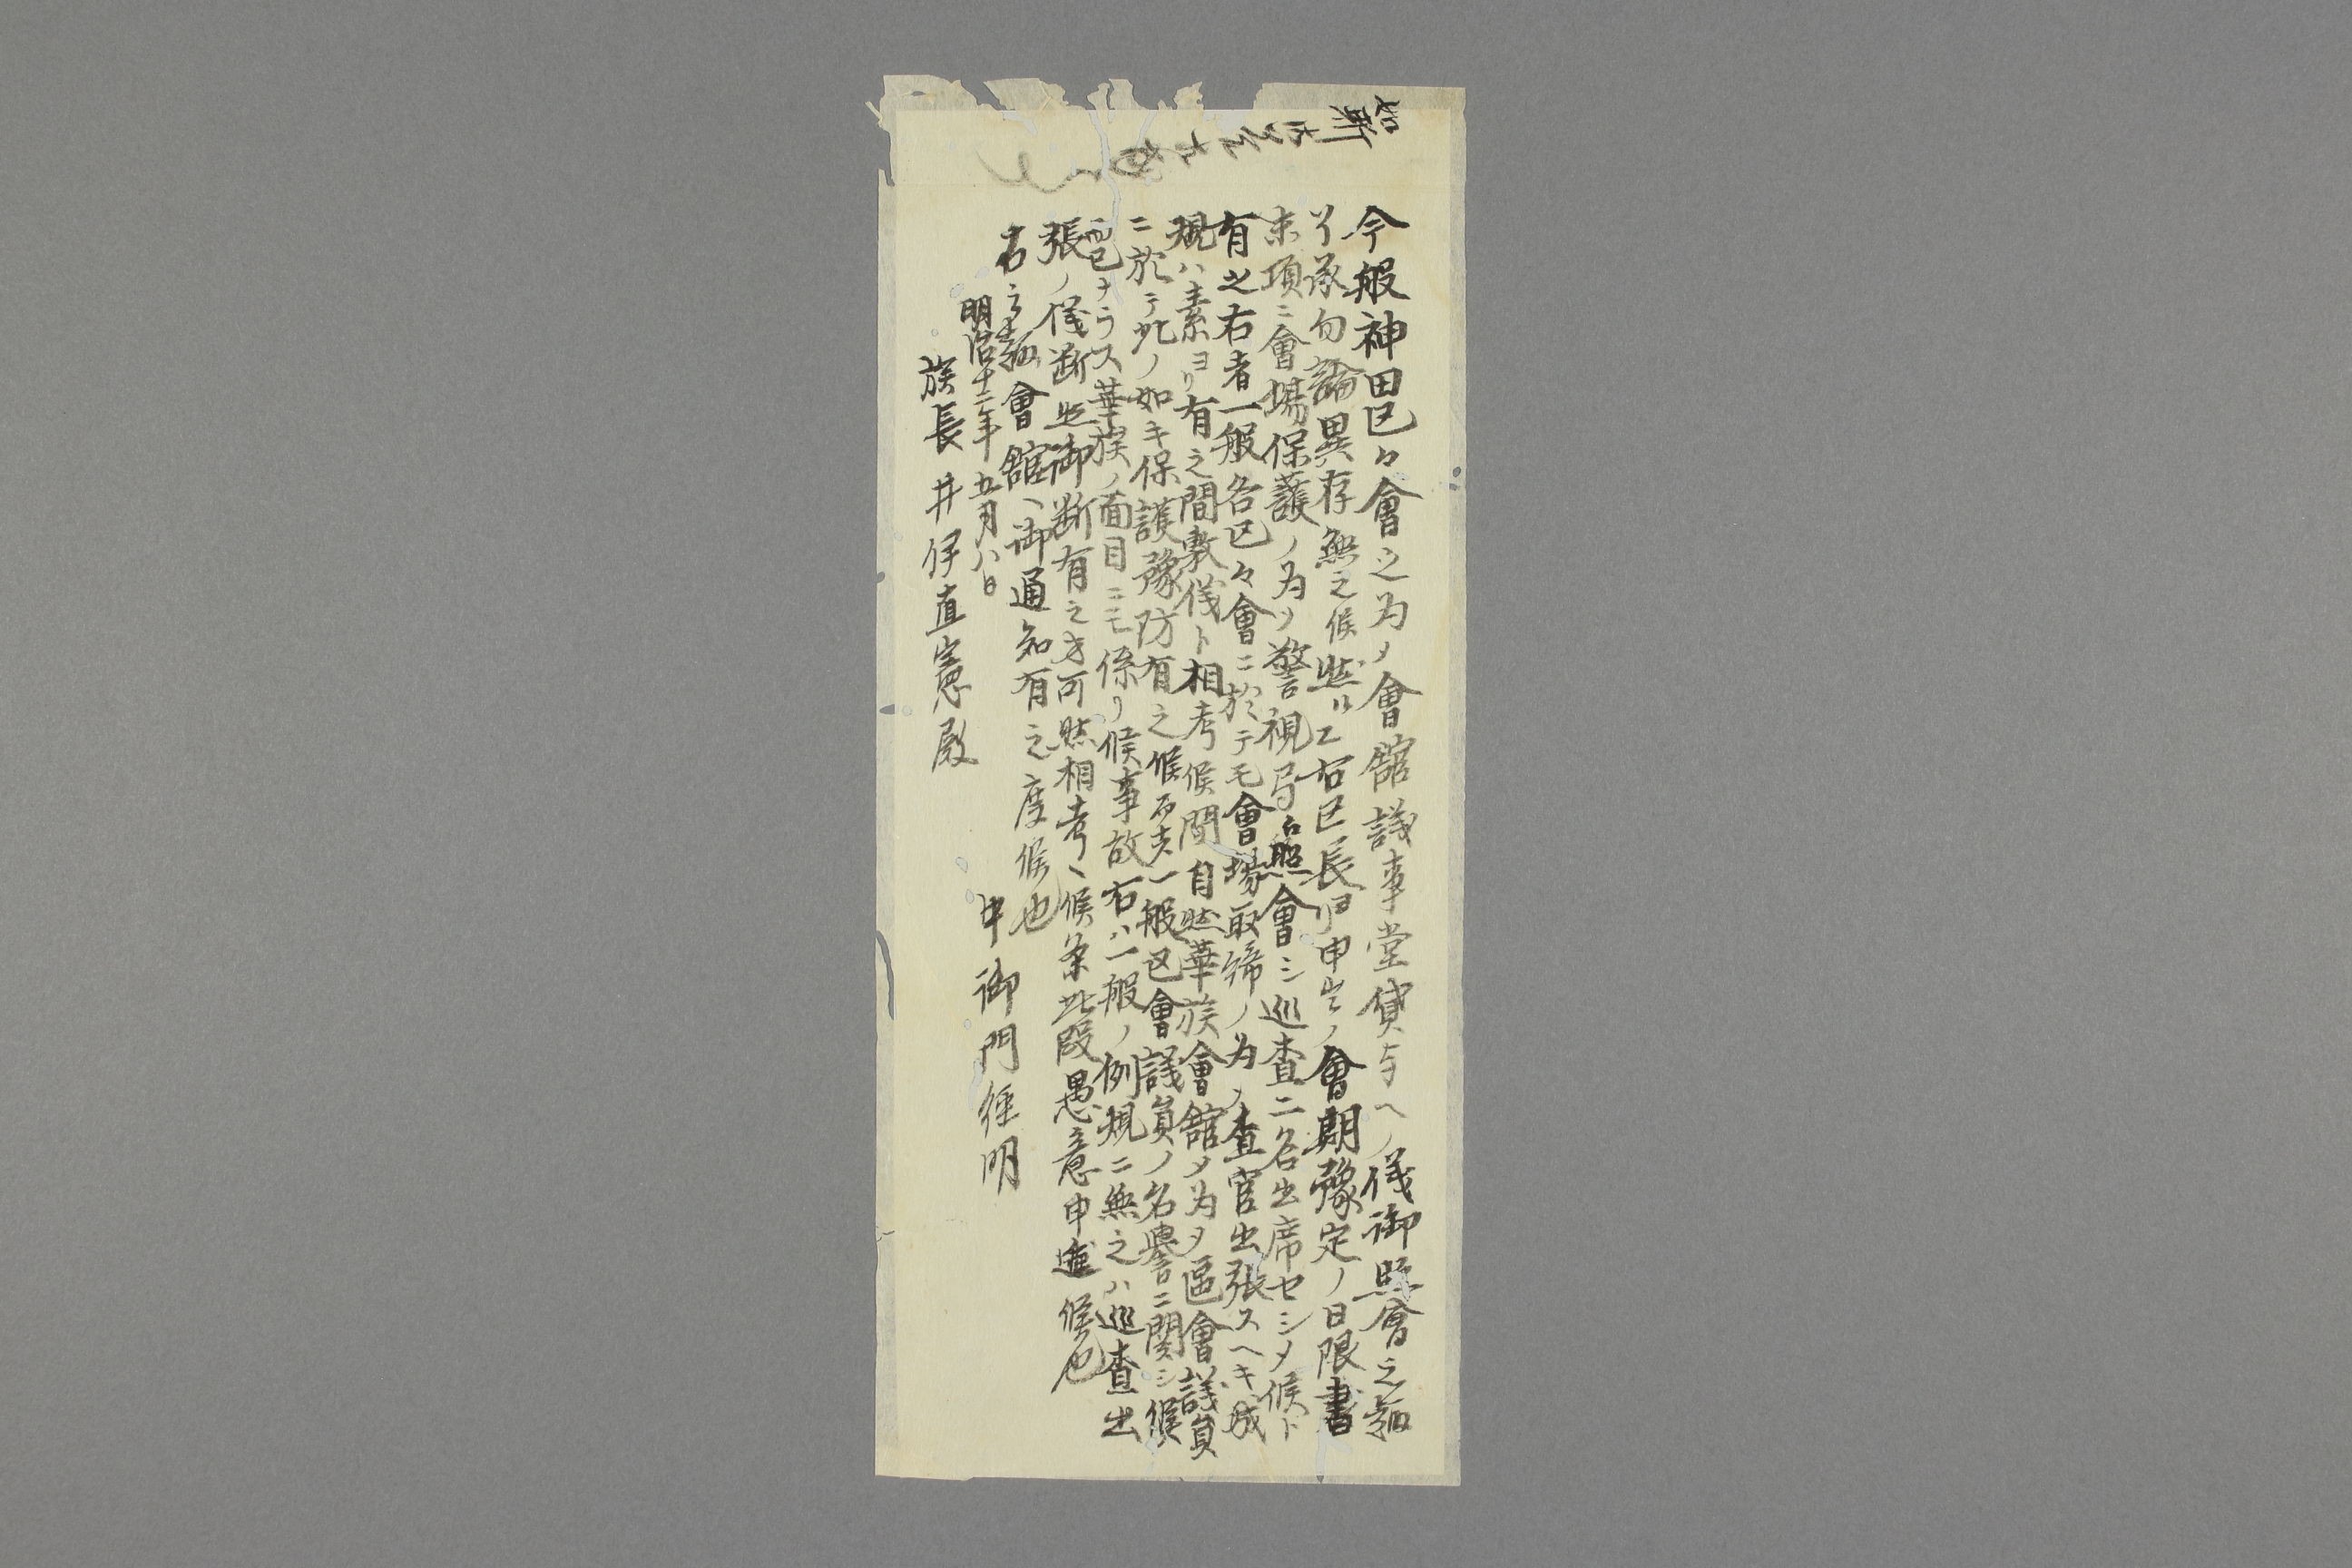 如斯
今般神田区々會之為メ會舘議事堂貸与ヘノ儀御照會之趣
了承勿論異存無之候然ルニ右区長ヨリ申出ノ會期豫定ノ日限書
末項ニ會場保護ノ為メ警視局ヘ照會シ巡査二名出席セシメ候ト
有之右者一般各区々會ニ於テモ會場取締ノ為メ査官出張スヘキ成
規ハ素ヨリ有之間敷儀ト相考候間自然華族會舘タ為メ區會議員
ニ於テ此ノ如キ保護豫防有之候而者一般区會議員ノ名譽ニ関シ候
而已ナラス華族ノ面目ニモ係リ候事故右ハ一般ノ例規ニ無之ハ巡査出
張ノ儀断然御断有之方可然相考ヘ候条此段愚意申進候也
右之趣會舘ヘ御通知有之度候也
明治十二年五月八日
中御門経明
族長井伊直憲殿